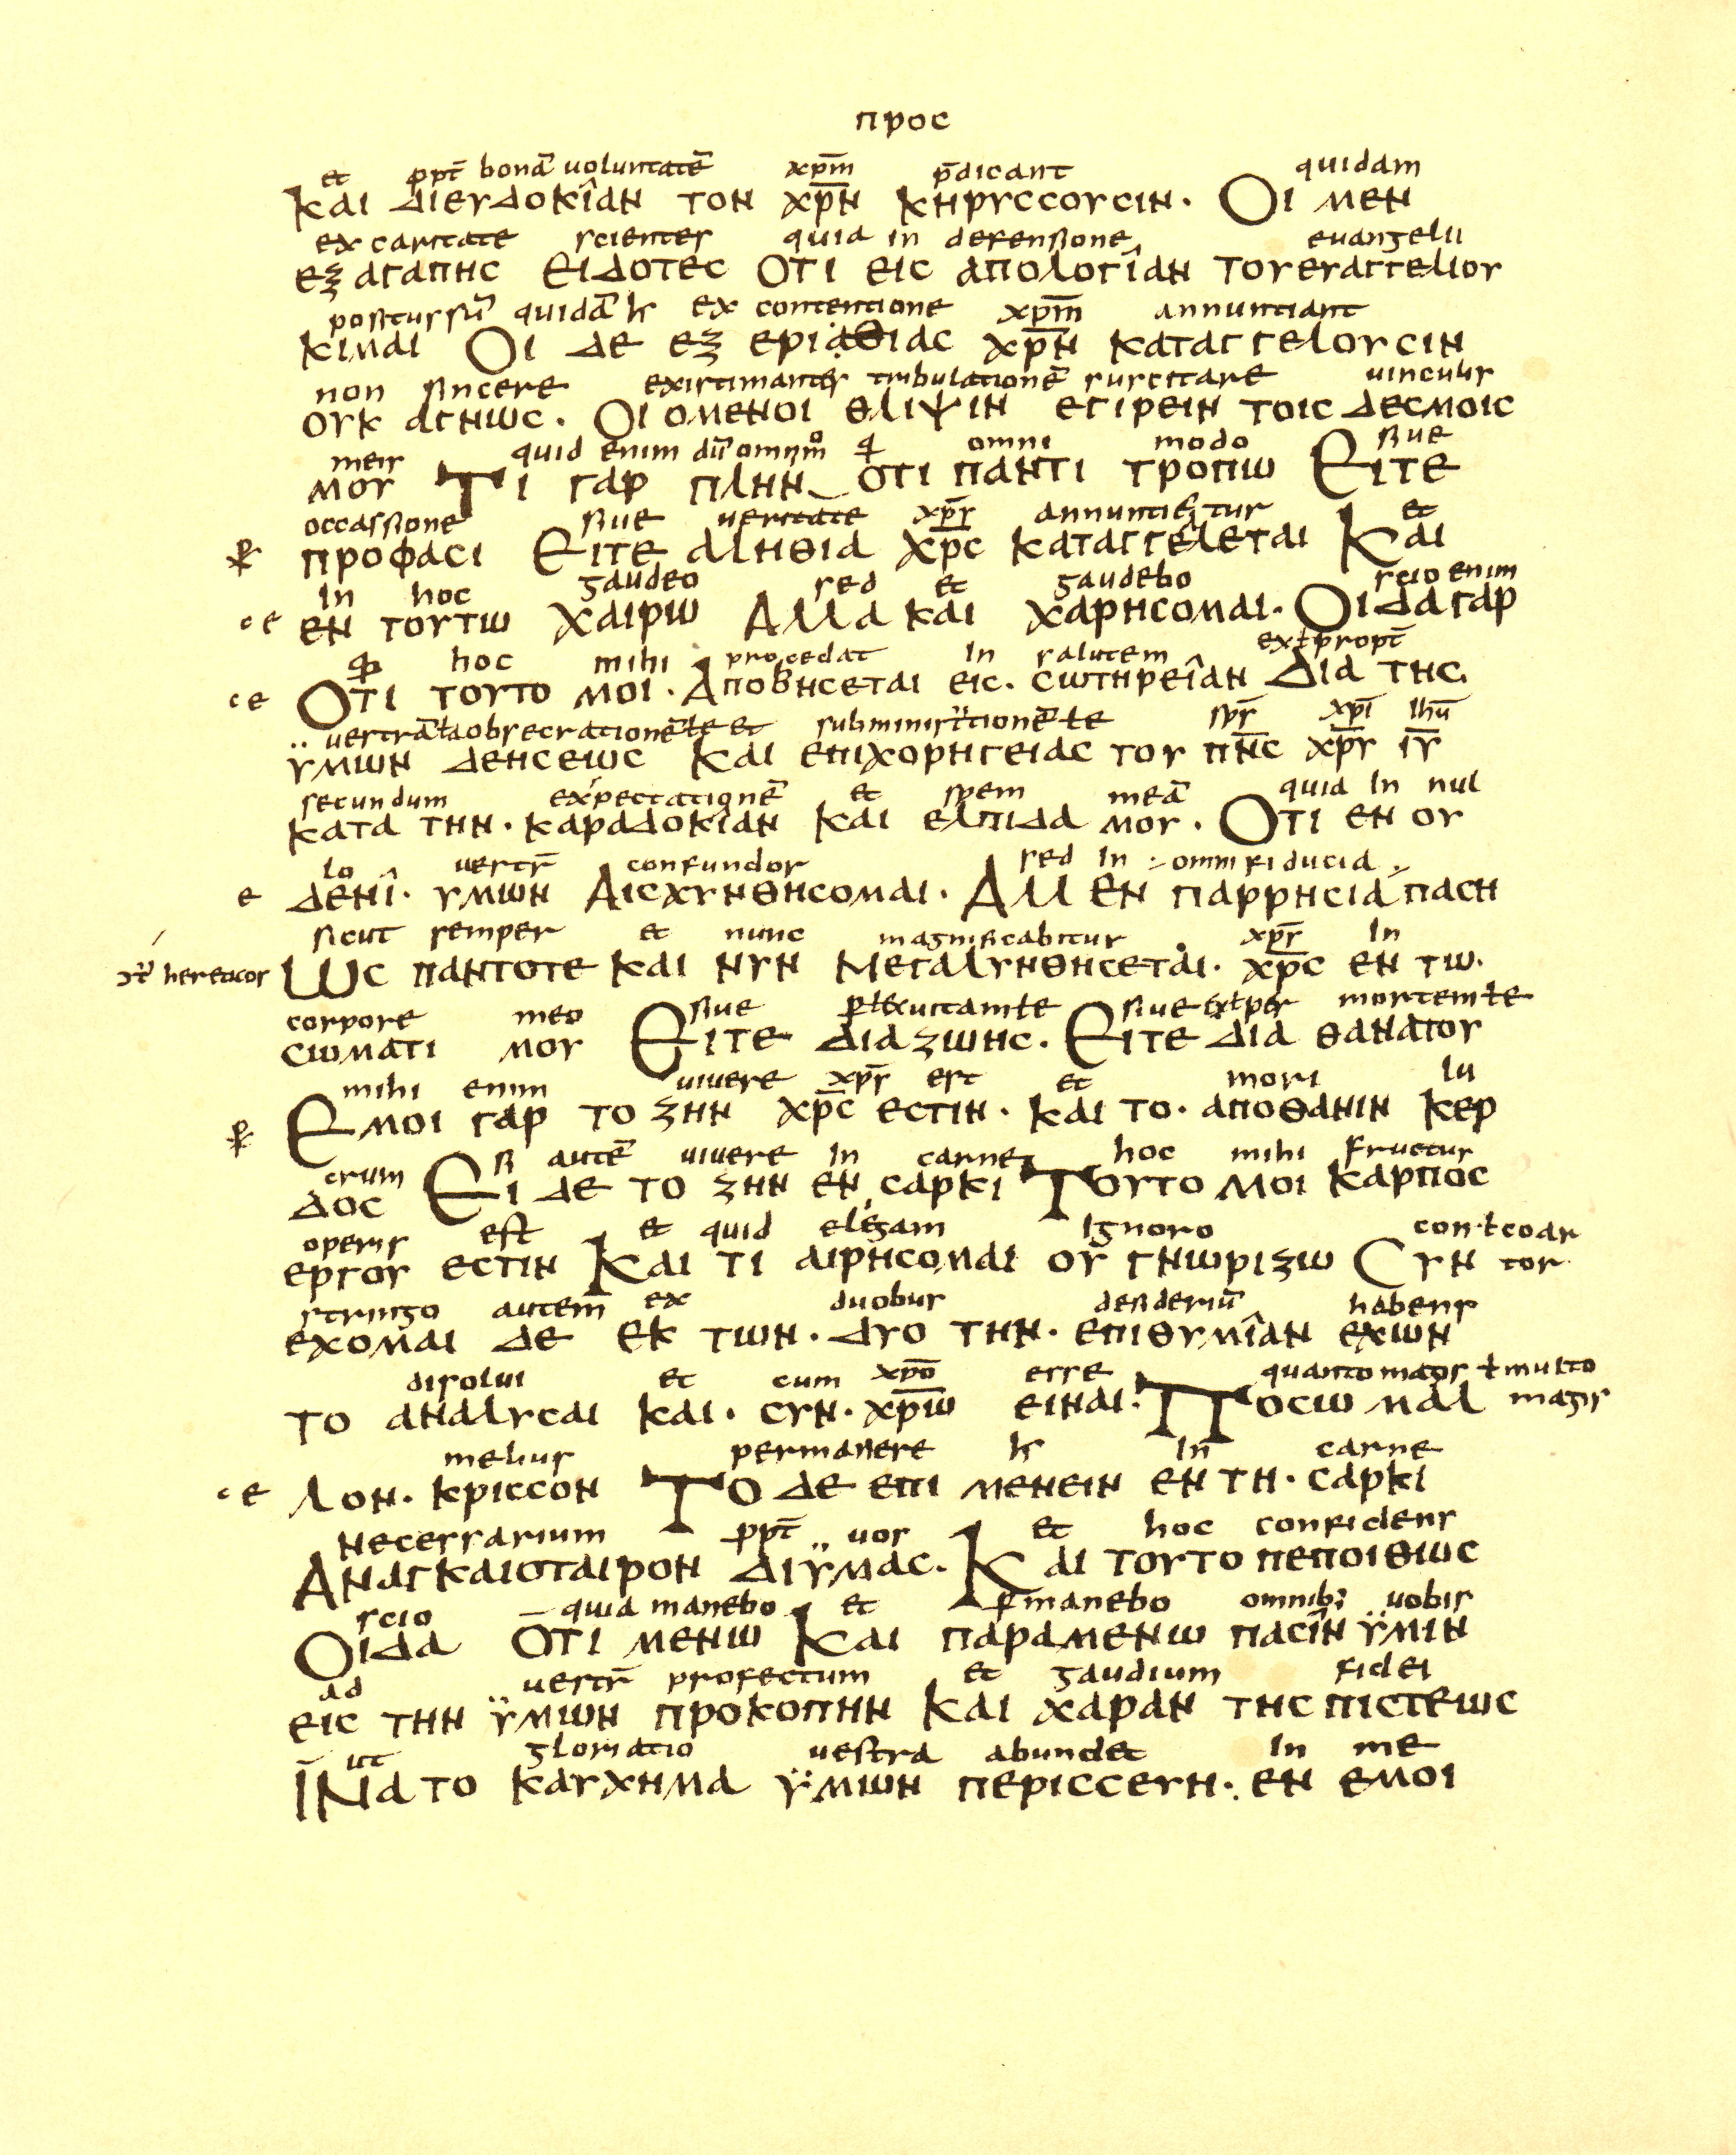 προς
et ppt̄ bonā uoluntatē xpm̄ p̄dicant quidam
και διευδοκîαν τον χρ̅ν κηρυccουcιν. Οι μεν
ex caritate scienter quia in defensione euangelii
εξ αγαπηc ειδοτεc οτι ειc απολογîαν τουευαγγελιου
positus sū quidā h̵ ex contentione xpm̄ annuntiant
κιμαι Οι δε εξ εριαθιαc χρ̅ν καταγγελουcιν
non sincere existimantes tribulationē suscitare uinculis
ουκ αγνωc. Οι ομενοι θλιψιν εγιρειν τοιc δεcμοιc
meis quid enim omni modo siue
μου Τι γαρ πλην οτι παντι τροπω Ειτε
occassione siue ueritate xpr̄ annuntietur et
προφαcι Ειτε αληθια χρ̅c καταγγελεται Και
in hoc gaudeo sed et gaudebo scio enim
εν τουτω χαιρω Αλλα και χαρηcομαι. Οιδα γαρ
hoc mihi procedat in salutem ex ł propt̄
Οτι τουτο μοι. Αποβηcεται ειc. cωτηρειâν Δια τηc
uestrā obsecrationē te et subministrationē te spr̄ xpī ihū
ϋμων δεηcεωc Και επιχορηγειαc του πν̅c χρ̅υ ιυ̅
secundum expectationē et spem meā quia in nul
κατα την. καραδοκîαν και ελπιδα μου. Οτι εν ου
lo uestr̄ confundor sed in omni fiducia
δενî. υμων Αιcχυνθηcομαι. Αλλ εν παρρηcια παcη
sicut semper et nunc magnificabitur xpr̄ in
hereticos Ωc παντοτε και νυν Μεγαλυνθηcεται. χρ̅c εν τω.
corpore meo siue uitam te siue ex ł per mortem te
cωματι μου Ειτε δια ζωηc. Ειτε δια θανατου
mihi enim uiuere xpr̄ est et mori lu
Εμοι γαρ το ζην χρ̅c εcτιν. και το. αποθανιν κερ
crum si autē uiuere in carne hoc mihi fructus
δοc Ει δε το ζην εν cαρκι Τουτο μοι καρποc
operis est et quid elegam ignoro con ł coar
εργου εcτιν Και τι αιρηcομαι ου γνωριζω Cυν
stringo autem ex duobus desideriū habens
εχομαι δε εκ των. δυο την. επιθυμîαν εχων
disolui et cum xpō esse quanto magis ł multo
το αναλυcαι και. cυν. χρ̅ω ειναι. Ποcω μαλ magis
melius permanere h̵ in carne
λον. κριccον Το δε επι μενειν εν τη. cαρκι
necessarium ppt̄ uos et hoc confidens
Αναγκαιοταιρον διϋμαc. Και τουτο πεποιθωc
scio quia manebo et pmanebo omnib; uobis
Οιδα οτι μενω Και παραμενω παcîν ϋμιν
ad uestr̄ profectum et gaudium fidei
ειc την ϋμων προκοπην Και χαραν τηc πιcτεωc
ut gloriatio uestra abundet in me
Ινα το καυχημα ϋμων περιccευη. εν εμοι